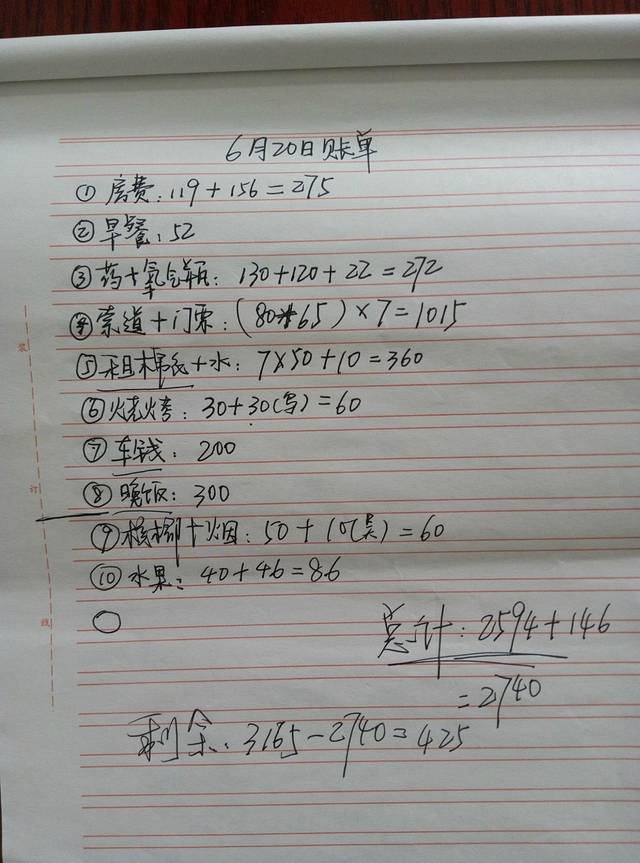 6月20日账单
① 房费：119+156=275
② 早餐：52
③ 药+氧气瓶：130+120+22=272
④ 索道+门票：(80+65)×7=1015
⑤ 租棉衣+水：7×50+10=360
⑥ 烧烤：30+30(鸟)=60
⑦ 车钱：200
⑧ 晚饭：300
⑨ 槟榔+烟：50+10(吴)=60
⑩ 水果：40+46=86
总计：2594+146
=2740
剩余：3165-2740=425
装
订
线